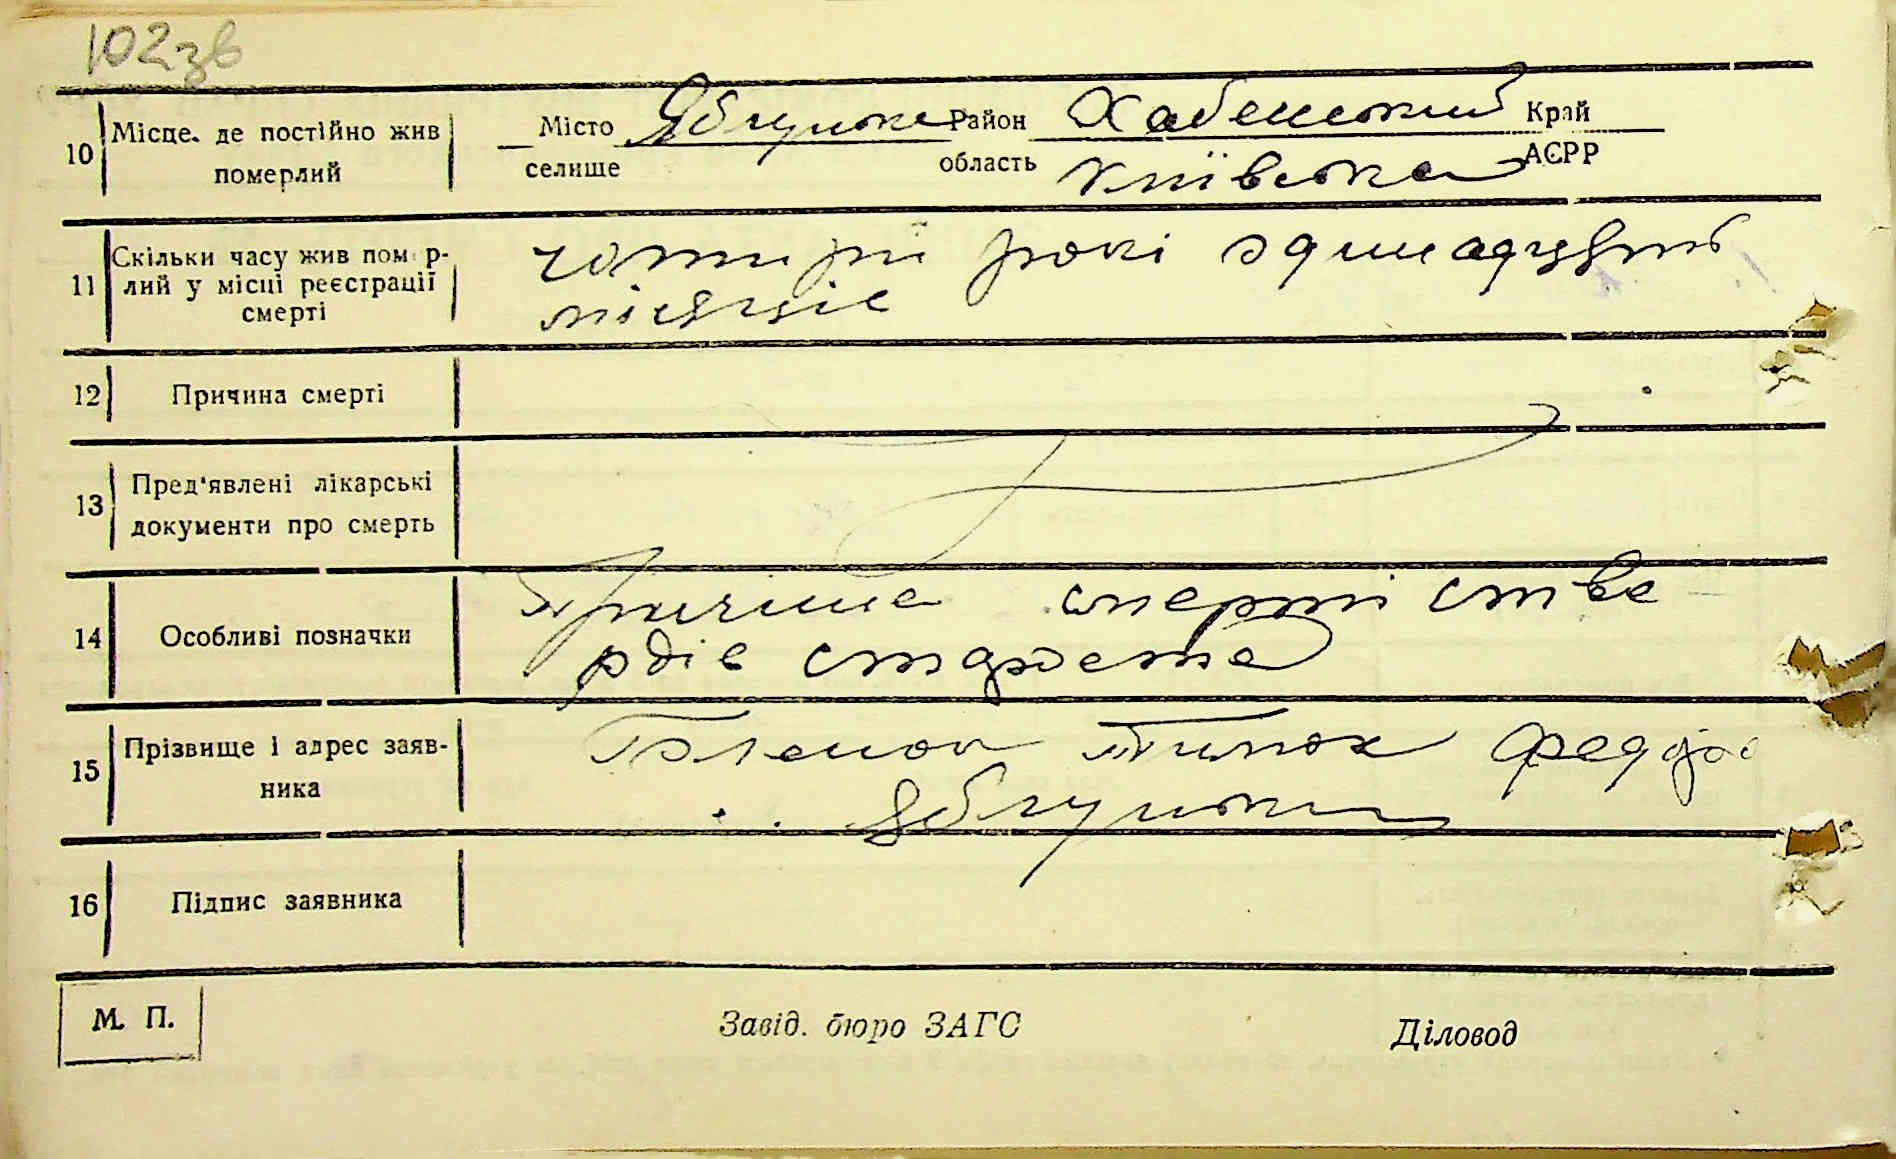 102зв
10 Місце, де постійно жив померлий
Місто селище Яблунька Район Хабенський Край
область Київська АСРР
11 Скільки часу жив померлий у місці реєстрації смерті
чотири рокі одинадцять
місяців
12 Причина смерті
13 Пред'явлені лікарські документи про смерть
14 Особливі позначки
Причина смерті ствe
рдів староста
15 Прізвище і адрес заявника
Тимох Федоро
Яблунька
16 Підпис заявника
М. П.
Завід. бюро ЗАГС
Діловод